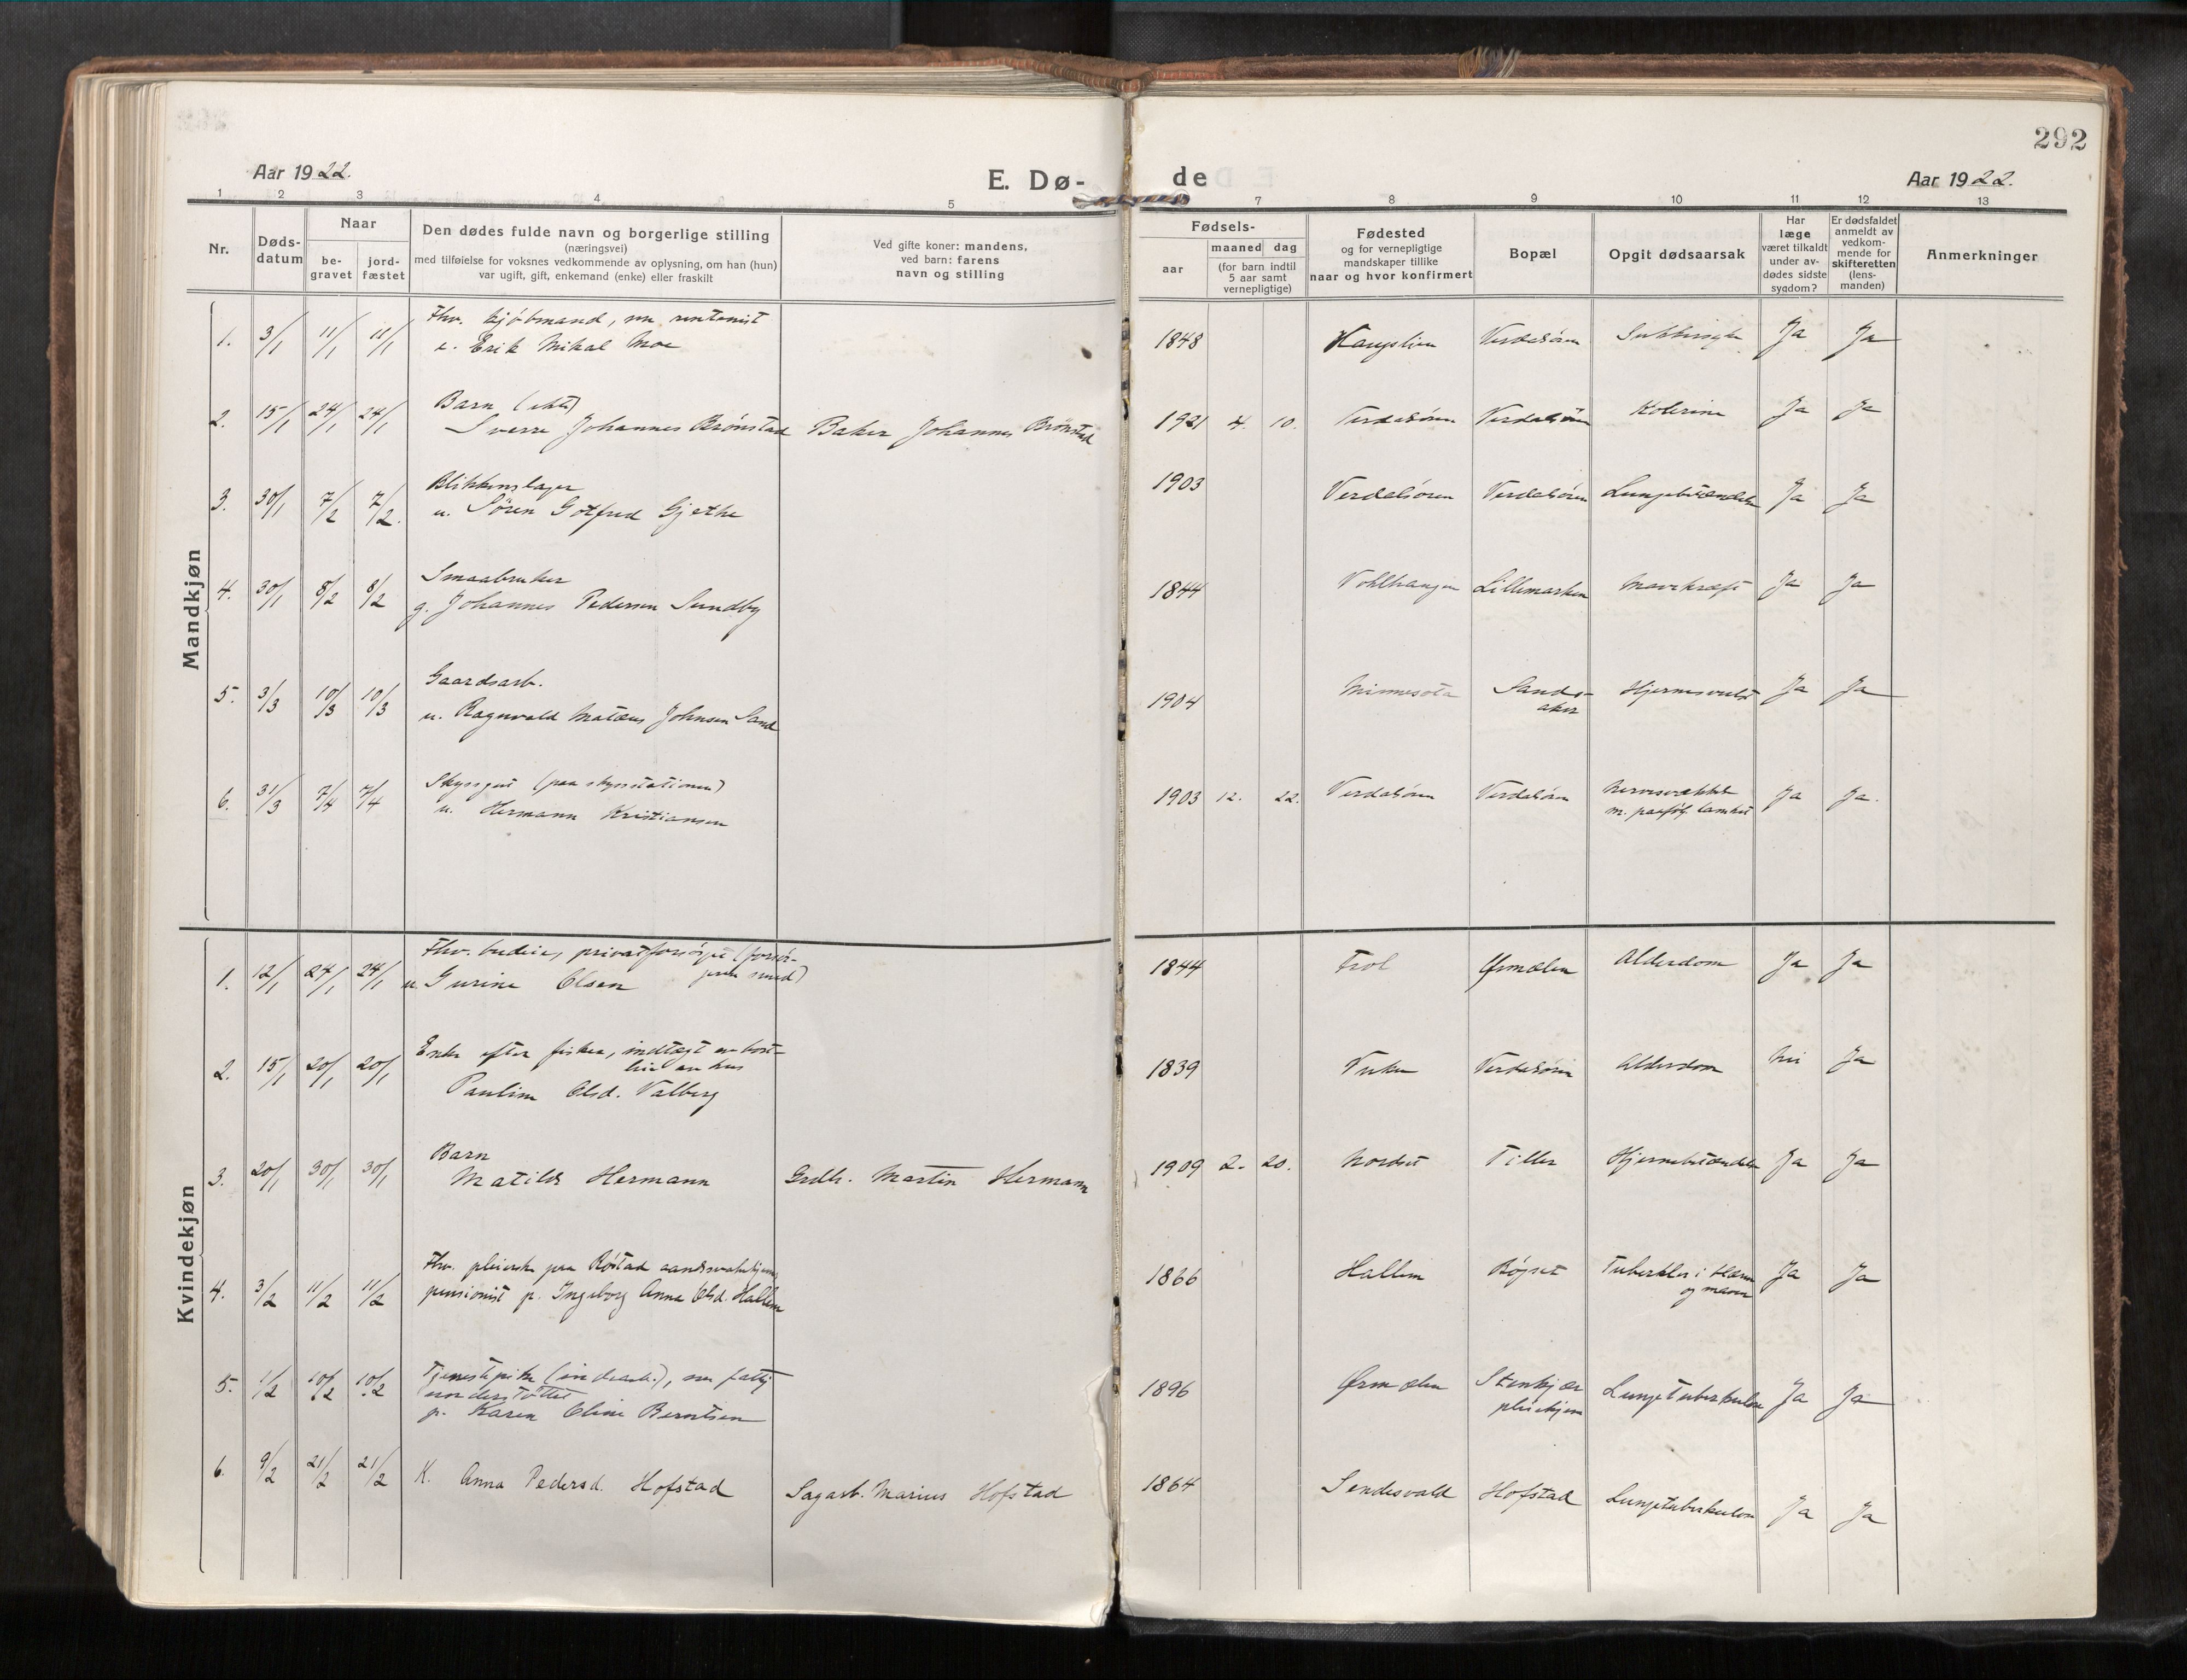 292
Aar 1922.
E. Dø-
de
Aar 1922.
1 2 3 4 5 7 8 9 10 11 12 13
Nr.
Døds-
datum
Naar
be-
gravet
jord-
fæstet
Den dødes fulde navn og borgerlige stilling
(næringsvei)
med tilføielse for voksnes vedkommende av oplysning, om han (hun)
var ugift, gift, enkemand (enke) eller fraskilt
Ved gifte koner: mandens,
ved barn: farens
navn og stilling
Fødsels-
aar
maaned dag
(for barn indtil
5 aar samt
vernepligtige)
Fødested
og for vernepligtige
mandskaper tillike
naar og hvor konfirmert
Bopæl
Opgit dødsaarsak
Har
læge
været tilkaldt
under av-
dødes sidste
sygdom?
Er dødsfaldet
anmeldt av
vedkom-
mende for
skifteretten
(lens-
manden)
Anmerkninger
Mandkjøn
1. 3/1 11/1 11/1 Fhv. kjøbmand, nu rentenist
e. Erik Mikal Moe
1848 Haugslien Verdalsøren Sukkersyke Ja Ja
2. 15/1 24/1 24/1 Barn (ekte)
Sverre Johannes Brønstad Baker Johannes Brønstad
1921 4. 10. Verdalsøren Verdalsøren Kolerine Ja Ja
3. 30/1 7/2 7/2. Blikkenslager
u. Søren Gotfred Gjethe
1903 Verdalsøren Verdalsøren Lungebetændelse Ja Ja
4. 30/1 8/2 8/2 Smaabruker
g. Johannes Pedersen Sundby
1844 Vohlhaugen Lillemarken Mavekræft Ja Ja
5. 3/3 10/3 10/3 Gaardsarb.
u. Ragnvald Matæus Johnsen Sand
1904 Minnesota Sands-
aker
Hjernesvulst Ja Ja
6. 31/3 7/4 7/4 Skyssgut (paa skysstationen)
u. Hermann Kristiansen
1903 12. 22. Verdalsøren Verdalsøren Nervesvækkelse
m. paaføl. lamhet
Ja Ja.
Kvindekjøn
1. 12/1 24/1 24/1 Fhv. budeie, privatforsørget (forsør-
u. Gurine Olsen
1844 Frol Ørmelen Alderdom Ja Ja
2. 15/1 20/1 20/1 Enke efter fisker, indtægt av bort-
leie av hus
Pauline Olsd. Valberg
1839 Vuku Verdalsøren Alderdom Nei Ja
3. 20/1 30/1 30/1 Barn
Matilde Hermann Grdbr. Martin Hermann
1909 2. 20. Nordset Tiller Hjernebetændelse Ja Ja
4. 3/2 11/2 11/2 Fhv. pleierske paa Røstad aandssvakehjem,
pensionist p. Ingeborg Anna Olsd. Hallem
1866 Hallem Bøgset Tuberkler i tarm
og maven
Ja Ja
5. 1/2 10/2 10/2 Tjenestepike (indearb.), nu fattig
understøttet
p. Karen Oline Berntsen
1896 Ørmelen Stenkjær
pleiehjem
Lungetuberkulose Ja Ja
6. 9/2 21/2 21/2 K. Anna Pedersd. Hofstad Sagarb. Marius Hofstad
1864 Sendesvald Hofstad Lungetuberkulose Ja Ja